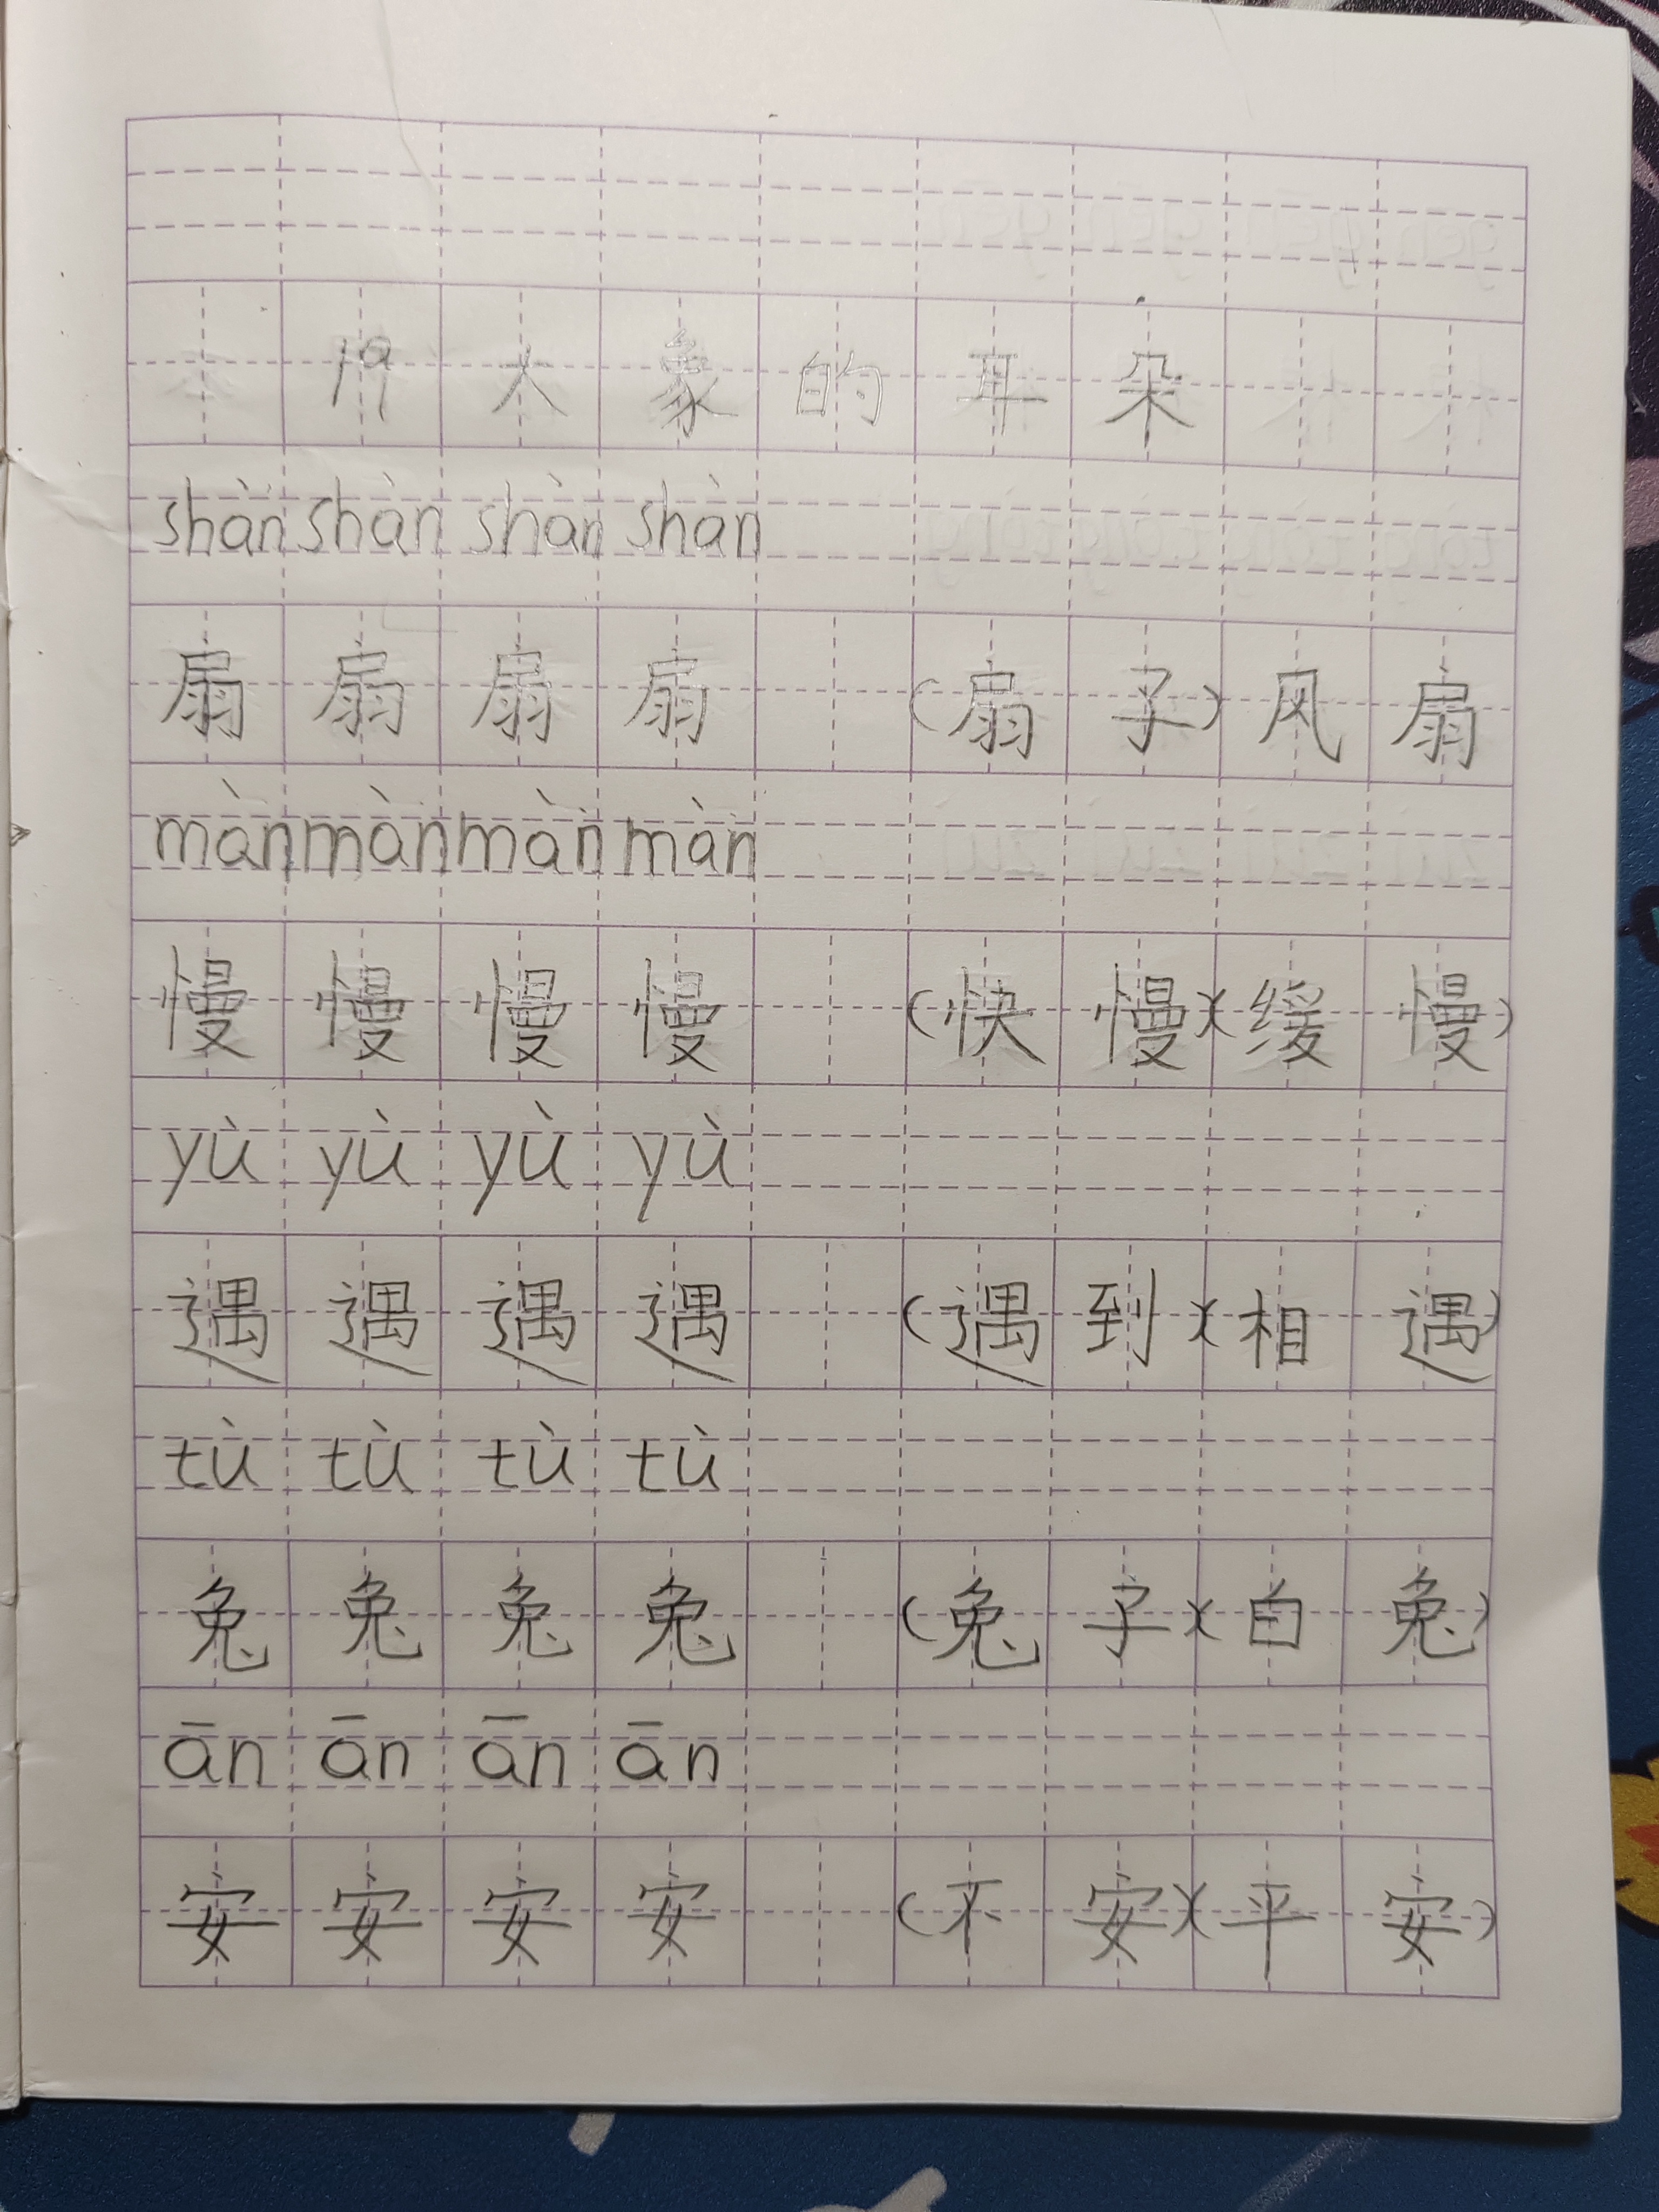 19 大象的耳朵
shàn shàn shàn shàn
扇 扇 扇 扇 (扇子) 风扇
màn màn màn màn
慢 慢 慢 慢 (快慢)(缓慢)
yù yù yù yù
遇 遇 遇 遇 (遇到)(相遇)
tù tù tù tù
兔 兔 兔 兔 (兔子)(白兔)
ān ān ān ān
安 安 安 安 (不安)(平安)